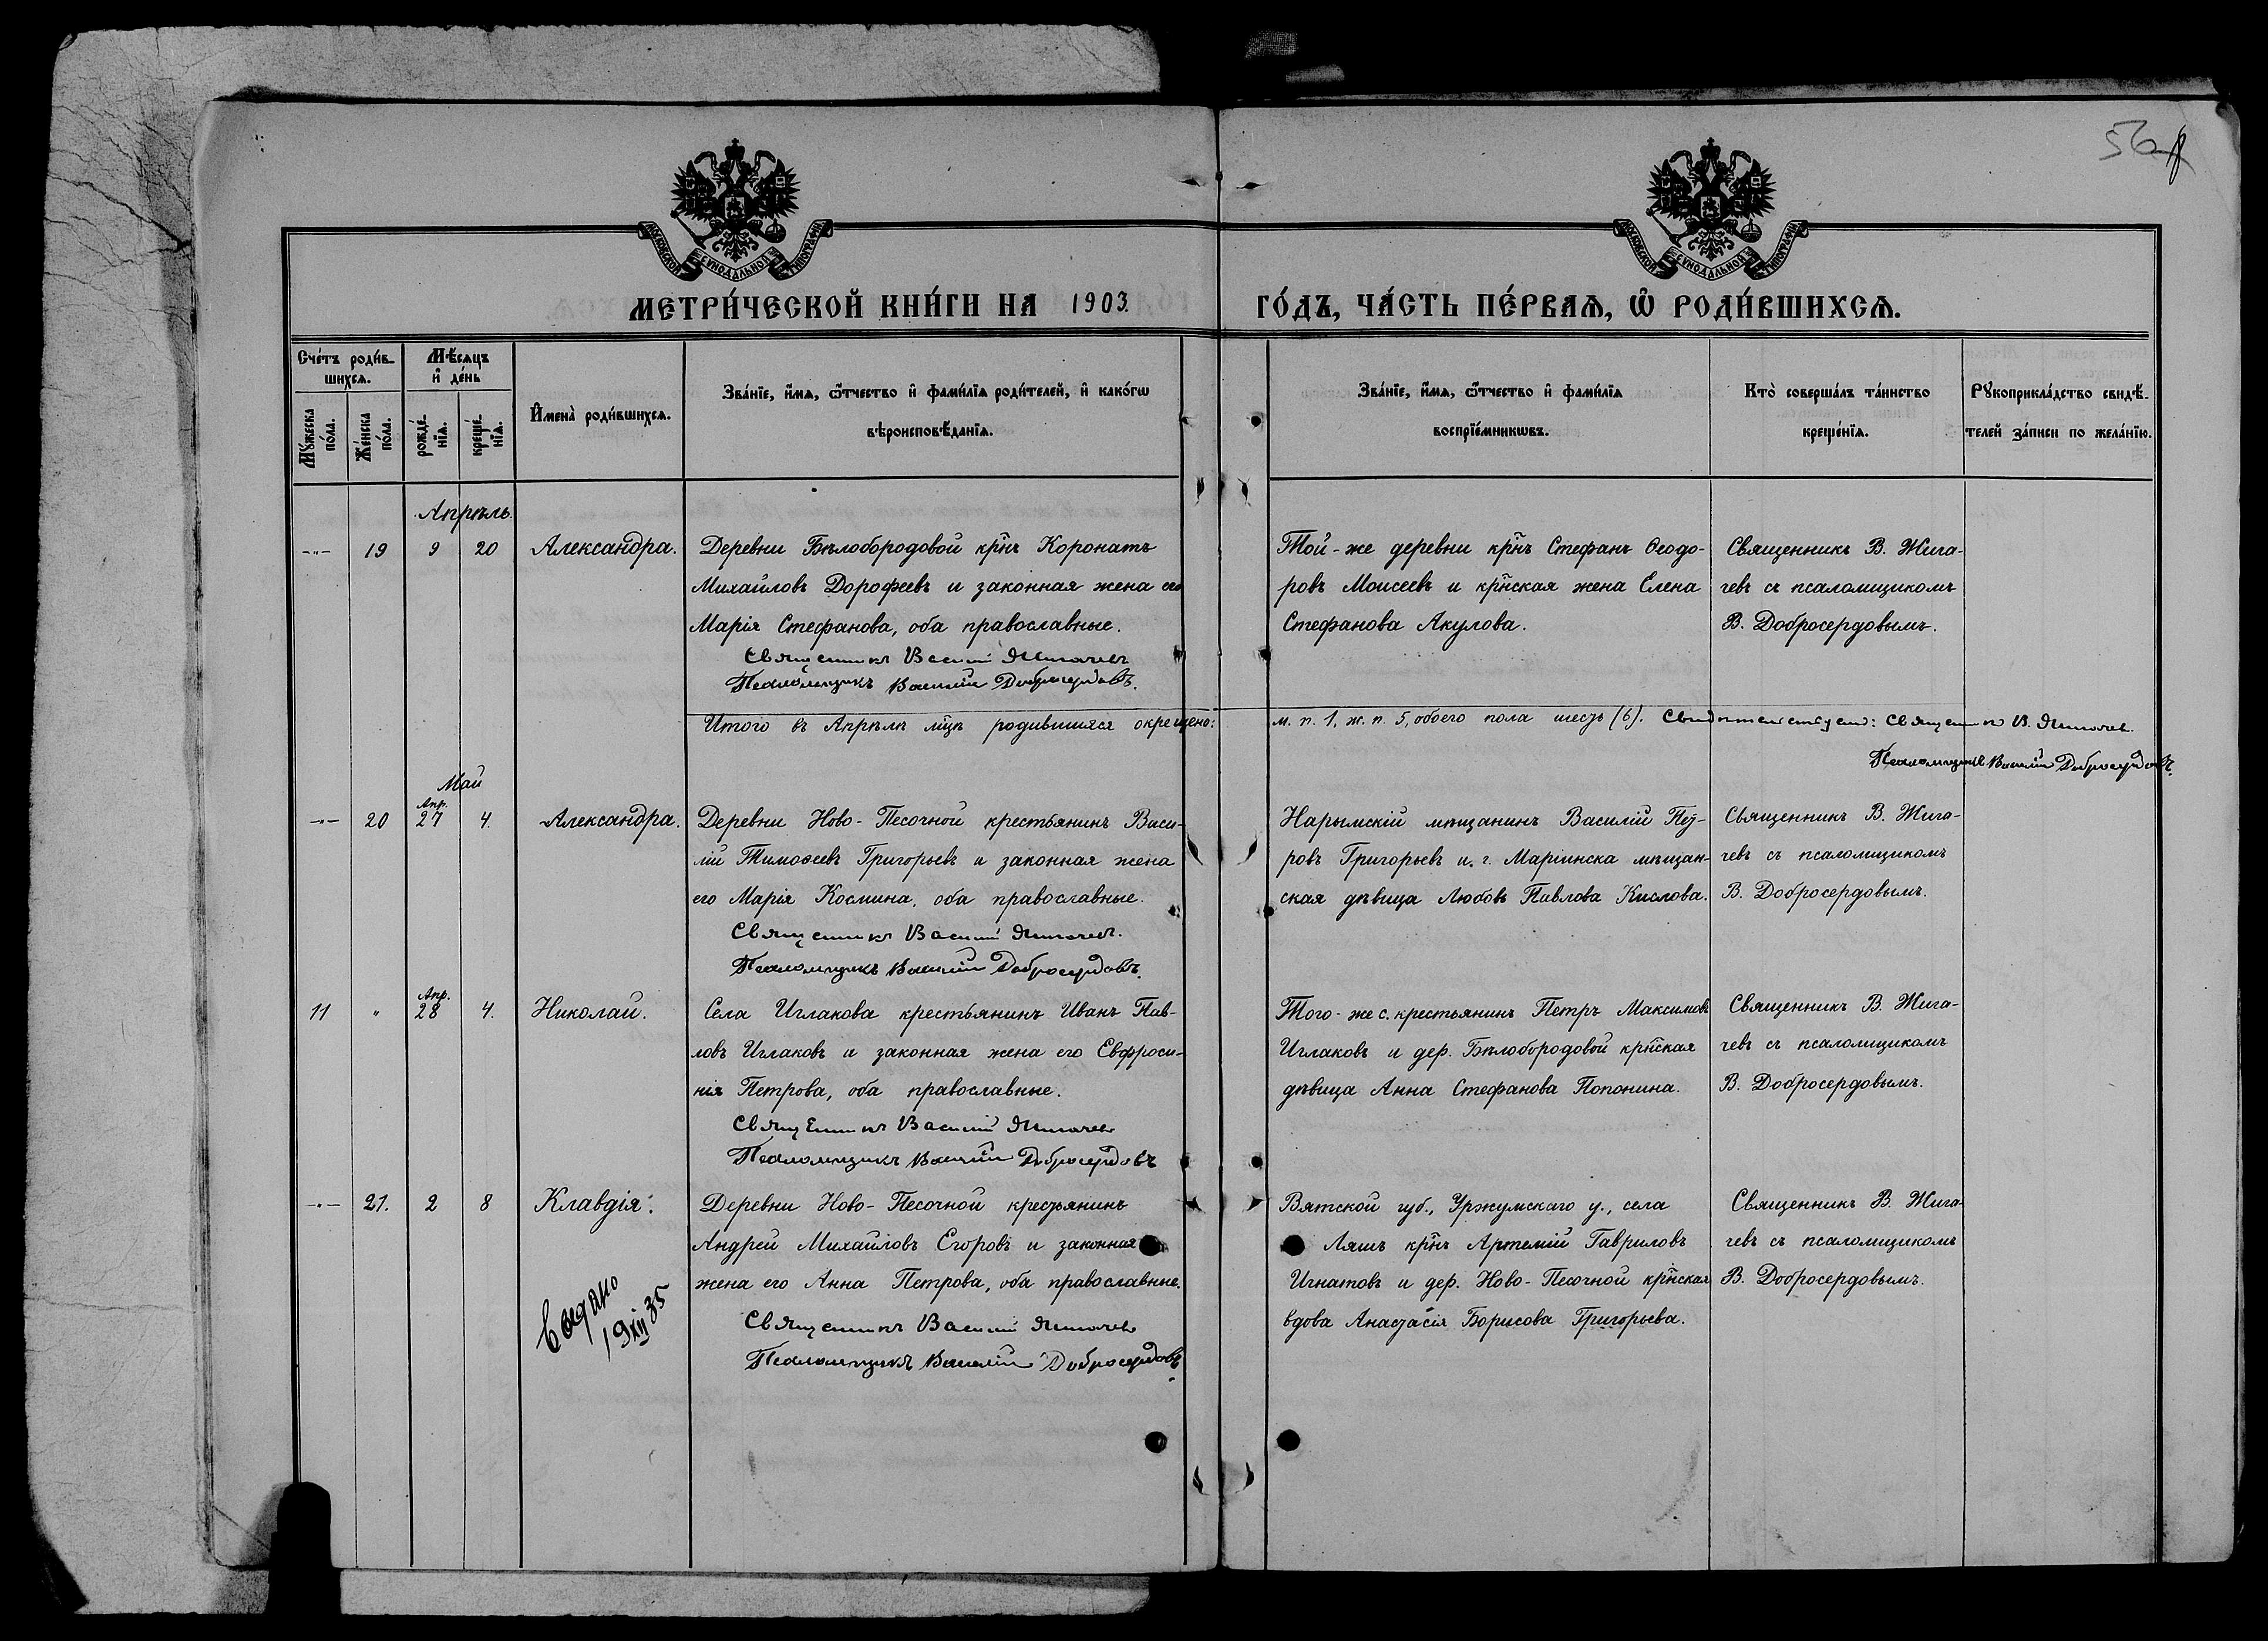 56
МОСКОВСКОЙ СѴНОДАЛЬНОЙ ТИПОГРАФІИ
МОСКОВСКОЙ СѴНОДАЛЬНОЙ ТИПОГРАФІИ
МЕТРИ́ЧЕСКОЙ КНИ́ГИ НА 1903.
ГО́ДЪ, ЧА́СТЬ ПЕ́РВАѦ, Ѡ҆ РОДИ́ВШИХСѦ.
Сче́тъ роди́в-
шихсѧ.
Мѣ́сѧцъ
и҆ де́нь
Мꙋ́жеска
по́ла.
Же́нска
по́ла.
рожде́-
нїѧ.
креще́-
нїѧ.
И҆мена̀ роди́вшихсѧ.
Зва́нїе, и҆́мѧ, ѻ҆́тчество и҆ фами́лїѧ роди́телей, и҆ како́гѡ
вѣроисповѣ́данїѧ.
Зва́нїе, и҆́мѧ, ѻ҆́тчество и҆ фами́лїѧ
воспрїе́мникѡвъ.
Кто̀ соверша́лъ та́инство
креще́нїѧ.
Рꙋкоприкла́дство свидѣ́-
телей за́писи по жела́нїю.
Апрѣль.
-"- 19 9 20 Александра.
Деревни Бѣлобородовой кр̃нъ Коронатъ
Михайловъ Дорофеевъ и законная жена его
Марія Стефанова, оба православные.
Священникъ Василій Жигачевъ
Псаломщикъ Василій Добросердовъ.
Той-же деревни кр̃нъ Стефанъ Ѳеодо-
ровъ Моисеевъ и кр̃нская жена Елена
Стефанова Акулова.
Священникъ В. Жига-
чевъ съ псаломщикомъ
В. Добросердовымъ.
Итого въ Апрѣлѣ мц̃ѣ родившихся окрещено: м. п. 1, ж. п. 5, обоего пола шесть (6). Свидѣтельствуемъ: Священникъ В. Жигачевъ.
Псаломщикъ Василій Добросердовъ.
Май
-"- 20 Апр. 27 4. Александра.
Деревни Ново-Песочной крестьянинъ Васи-
лій Тимоѳеевъ Григорьевъ и законная жена
его Марія Космина, оба православные.
Священникъ Василій Жигачевъ.
Псаломщикъ Василій Добросердовъ.
Нарымскій мѣщанинъ Василій Пет̃-
ровъ Григорьевъ и г. Маріинска мѣщан-
ская дѣвица Любовь Павлова Кислова.
Священникъ В. Жига-
чевъ съ псаломщикомъ
В. Добросердовымъ.
11 " Апр. 28 4. Николай.
Села Иглакова крестьянинъ Иванъ Пав-
ловъ Иглаковъ и законная жена его Евфроси-
нія Петрова, оба православные.
Священникъ Василій Жигачевъ
Псаломщикъ Василій Добросердовъ
Того-же с. крестьянинъ Петръ Максимовъ
Иглаковъ и дер. Бѣлобородовой кр̃нская
дѣвица Анна Стефанова Попонина.
Священникъ В. Жига-
чевъ съ псаломщикомъ
В. Добросердовымъ.
-"- 21. 2 8 Клавдія.
Деревни Ново-Песочной крестьянинъ
Андрей Михайловъ Егоровъ и законная
жена его Анна Петрова, оба православные.
Священникъ Василій Жигачевъ
Псаломщикъ Василій Добросердовъ.
Вятской губ., Уржумскаго у., села
Ляжъ кр̃нъ Артемій Гавриловъ
Игнатовъ и дер. Ново-Песочной кр̃нская
вдова Анастасія Борисова Григорьева.
Священникъ В. Жига-
чевъ съ псаломщикомъ
В. Добросердовымъ.
Выдано
19 XII 35